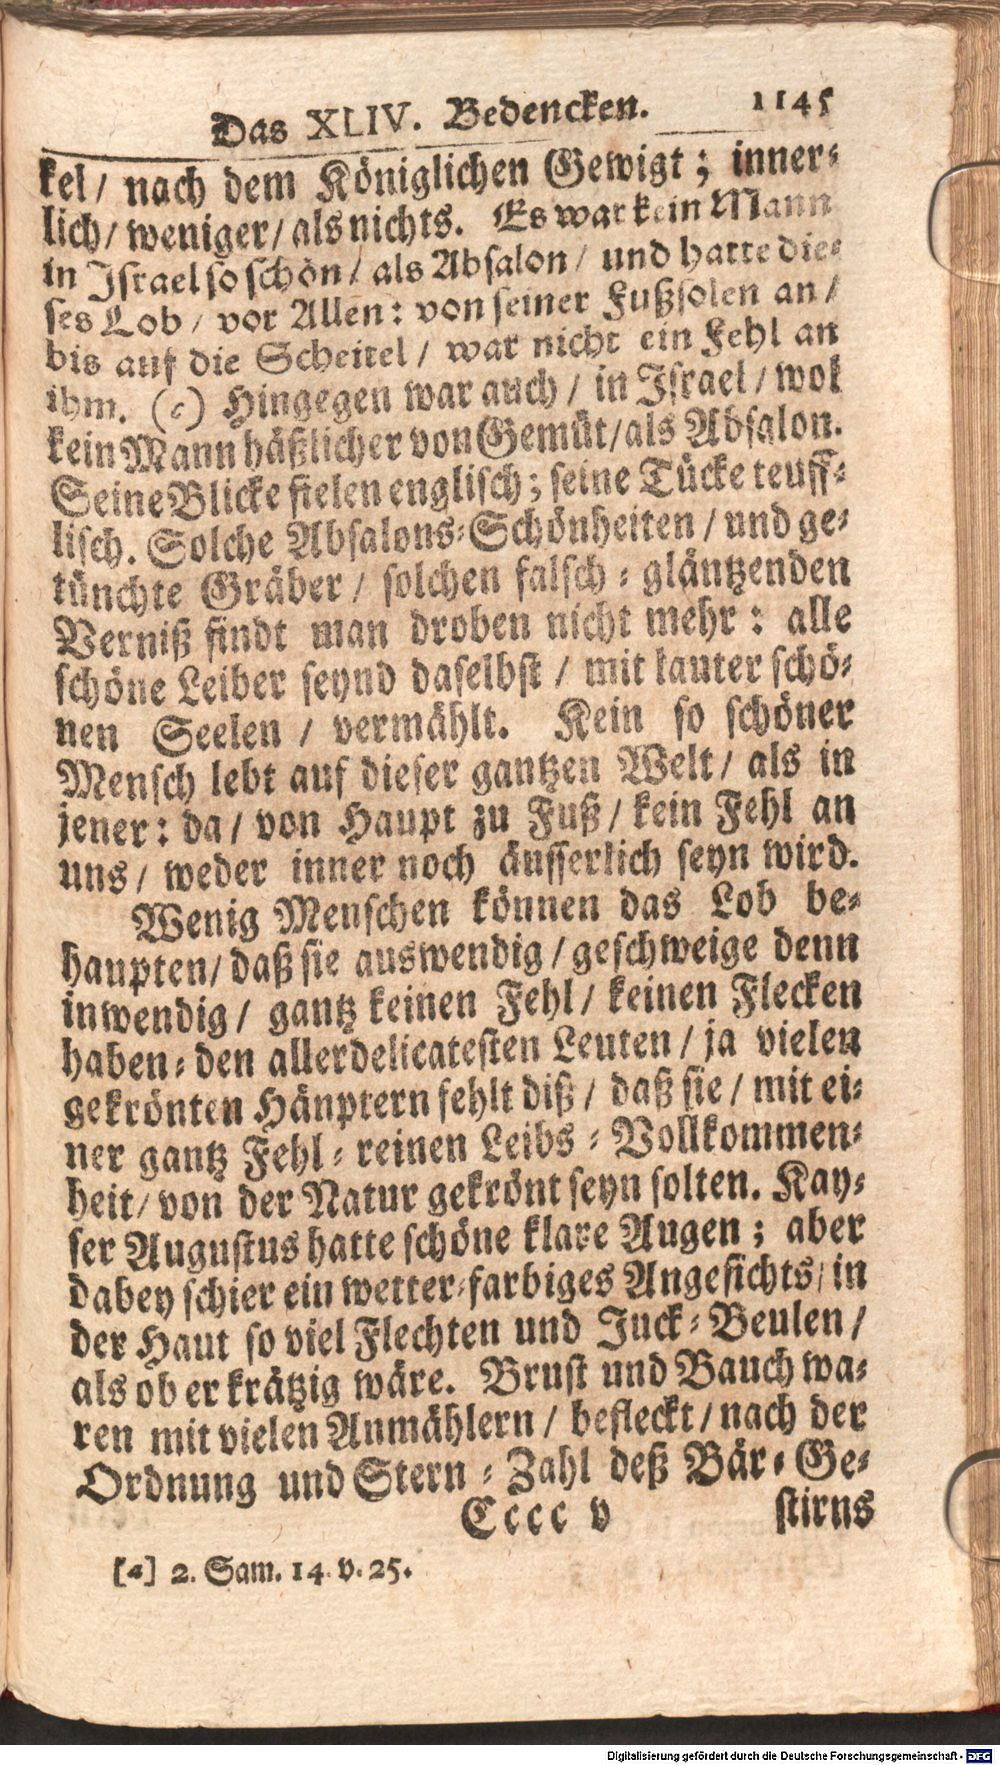 Das XLIV. Bedencken. 1145
kel/ nach dem Königlichen Gewigt; inner-
lich/ weniger/ als nichts. Es war kein Mann
in Israel so schön/ als Absalon/ und hatte die-
ses Lob/ vor Allen: von seiner Fußsolen an/
bis auf die Scheitel/ war nicht ein Fehl an
ihm. (c) Hingegen war auch/ in Israel/ wol
kein Mann häßlicher von Gemüt/ als Absalon.
Seine Blicke fielen englisch; seine Tücke teuff-
lisch. Solche Absalons-Schönheiten/ und ge-
tünchte Gräber/ solchen falsch-gläntzenden
Verniß findt man droben nicht mehr: alle
schöne Leiber seynd daselbst/ mit lauter schö-
nen Seelen/ vermählt. Kein so schöner
Mensch lebt auf dieser gantzen Welt/ als in
jener: da/ von Haupt zu Fuß/ kein Fehl an
uns/ weder inner noch äusserlich seyn wird.
Wenig Menschen können das Lob be-
haupten/ daß sie auswendig/ geschweige denn
inwendig/ gantz keinen Fehl/ keinen Flecken
haben-den allerdelicatesten Leuten/ ja vielen
gekrönten Hänptern fehlt diß/ daß sie/ mit ei-
ner gantz Fehl-reinen Leibs-Vollkommen-
heit/ von der Natur gekrönt seyn solten. Kay-
ser Augustus hatte schöne klare Augen; aber
dabey schier ein wetter-farbiges Angesichts/ in
der Haut so viel Flechten und Juck-Beulen/
als ob er krätzig wäre. Brust und Bauch wa-
ren mit vielen Anmählern/ befleckt/ nach der
Ordnung und Stern-Zahl deß Bär-Ge-
Cccc v stirns
[a] 2. Sam. 14. v. 25.
Digitalisierung gefördert durch die Deutsche Forschungsgemeinschaft - DFG